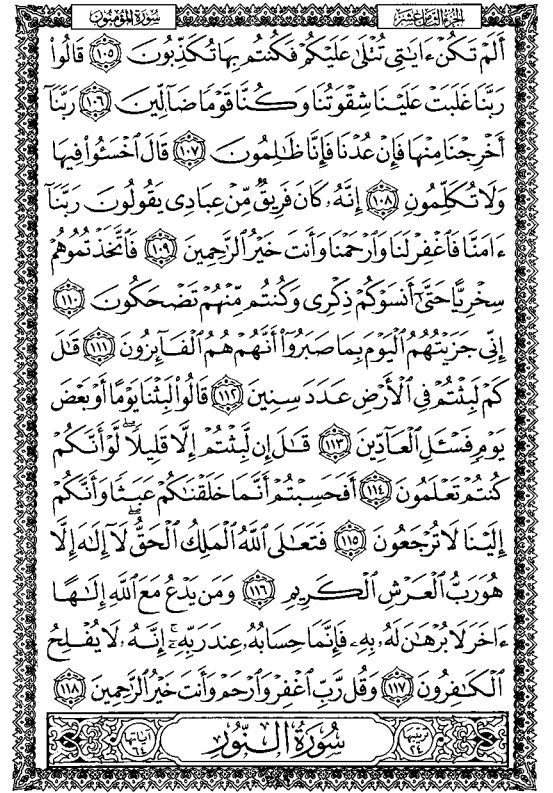 سُورَةُ المُؤْمِنُونَ الجُزْءُ الثَّامِنَ عَشَرَ
أَلَمْ تَكُنْ ءَايَٰتِى تُتْلَىٰ عَلَيْكُمْ فَكُنتُم بِهَا تُكَذِّبُونَ ١٠٥ قَالُوا۟
رَبَّنَا غَلَبَتْ عَلَيْنَا شِقْوَتُنَا وَكُنَّا قَوْمًا ضَآلِّينَ ١٠٦ رَبَّنَآ
أَخْرِجْنَا مِنْهَا فَإِنْ عُدْنَا فَإِنَّا ظَٰلِمُونَ ١٠٧ قَالَ ٱخْسَـُٔوا۟ فِيهَا
وَلَا تُكَلِّمُونِ ١٠٨ إِنَّهُۥ كَانَ فَرِيقٌ مِّنْ عِبَادِى يَقُولُونَ رَبَّنَآ
ءَامَنَّا فَٱغْفِرْ لَنَا وَٱرْحَمْنَا وَأَنتَ خَيْرُ ٱلرَّٰحِمِينَ ١٠٩ فَٱتَّخَذْتُمُوهُمْ
سِخْرِيًّا حَتَّىٰٓ أَنسَوْكُمْ ذِكْرِى وَكُنتُم مِّنْهُمْ تَضْحَكُونَ ١١٠
إِنِّى جَزَيْتُهُمُ ٱلْيَوْمَ بِمَا صَبَرُوٓا۟ أَنَّهُمْ هُمُ ٱلْفَآئِزُونَ ١١١ قَٰلَ
كَمْ لَبِثْتُمْ فِى ٱلْأَرْضِ عَدَدَ سِنِينَ ١١٢ قَالُوا۟ لَبِثْنَا يَوْمًا أَوْ بَعْضَ
يَوْمٍ فَسْـَٔلِ ٱلْعَآدِّينَ ١١٣ قَٰلَ إِن لَّبِثْتُمْ إِلَّا قَلِيلًا ۖ لَّوْ أَنَّكُمْ
كُنتُمْ تَعْلَمُونَ ١١٤ أَفَحَسِبْتُمْ أَنَّمَا خَلَقْنَٰكُمْ عَبَثًا وَأَنَّكُمْ
إِلَيْنَا لَا تُرْجَعُونَ ١١٥ فَتَعَٰلَى ٱللَّهُ ٱلْمَلِكُ ٱلْحَقُّ ۖ لَآ إِلَٰهَ إِلَّا
هُوَ رَبُّ ٱلْعَرْشِ ٱلْكَرِيمِ ١١٦ وَمَن يَدْعُ مَعَ ٱللَّهِ إِلَٰهًا
ءَاخَرَ لَا بُرْهَٰنَ لَهُۥ بِهِۦ فَإِنَّمَا حِسَابُهُۥ عِندَ رَبِّهِۦٓ ۚ إِنَّهُۥ لَا يُفْلِحُ
ٱلْكَٰفِرُونَ ١١٧ وَقُل رَّبِّ ٱغْفِرْ وَٱرْحَمْ وَأَنتَ خَيْرُ ٱلرَّٰحِمِينَ ١١٨
ترتيبها ٢٤ سُورَةُ النُّورِ آياتها ٦٤